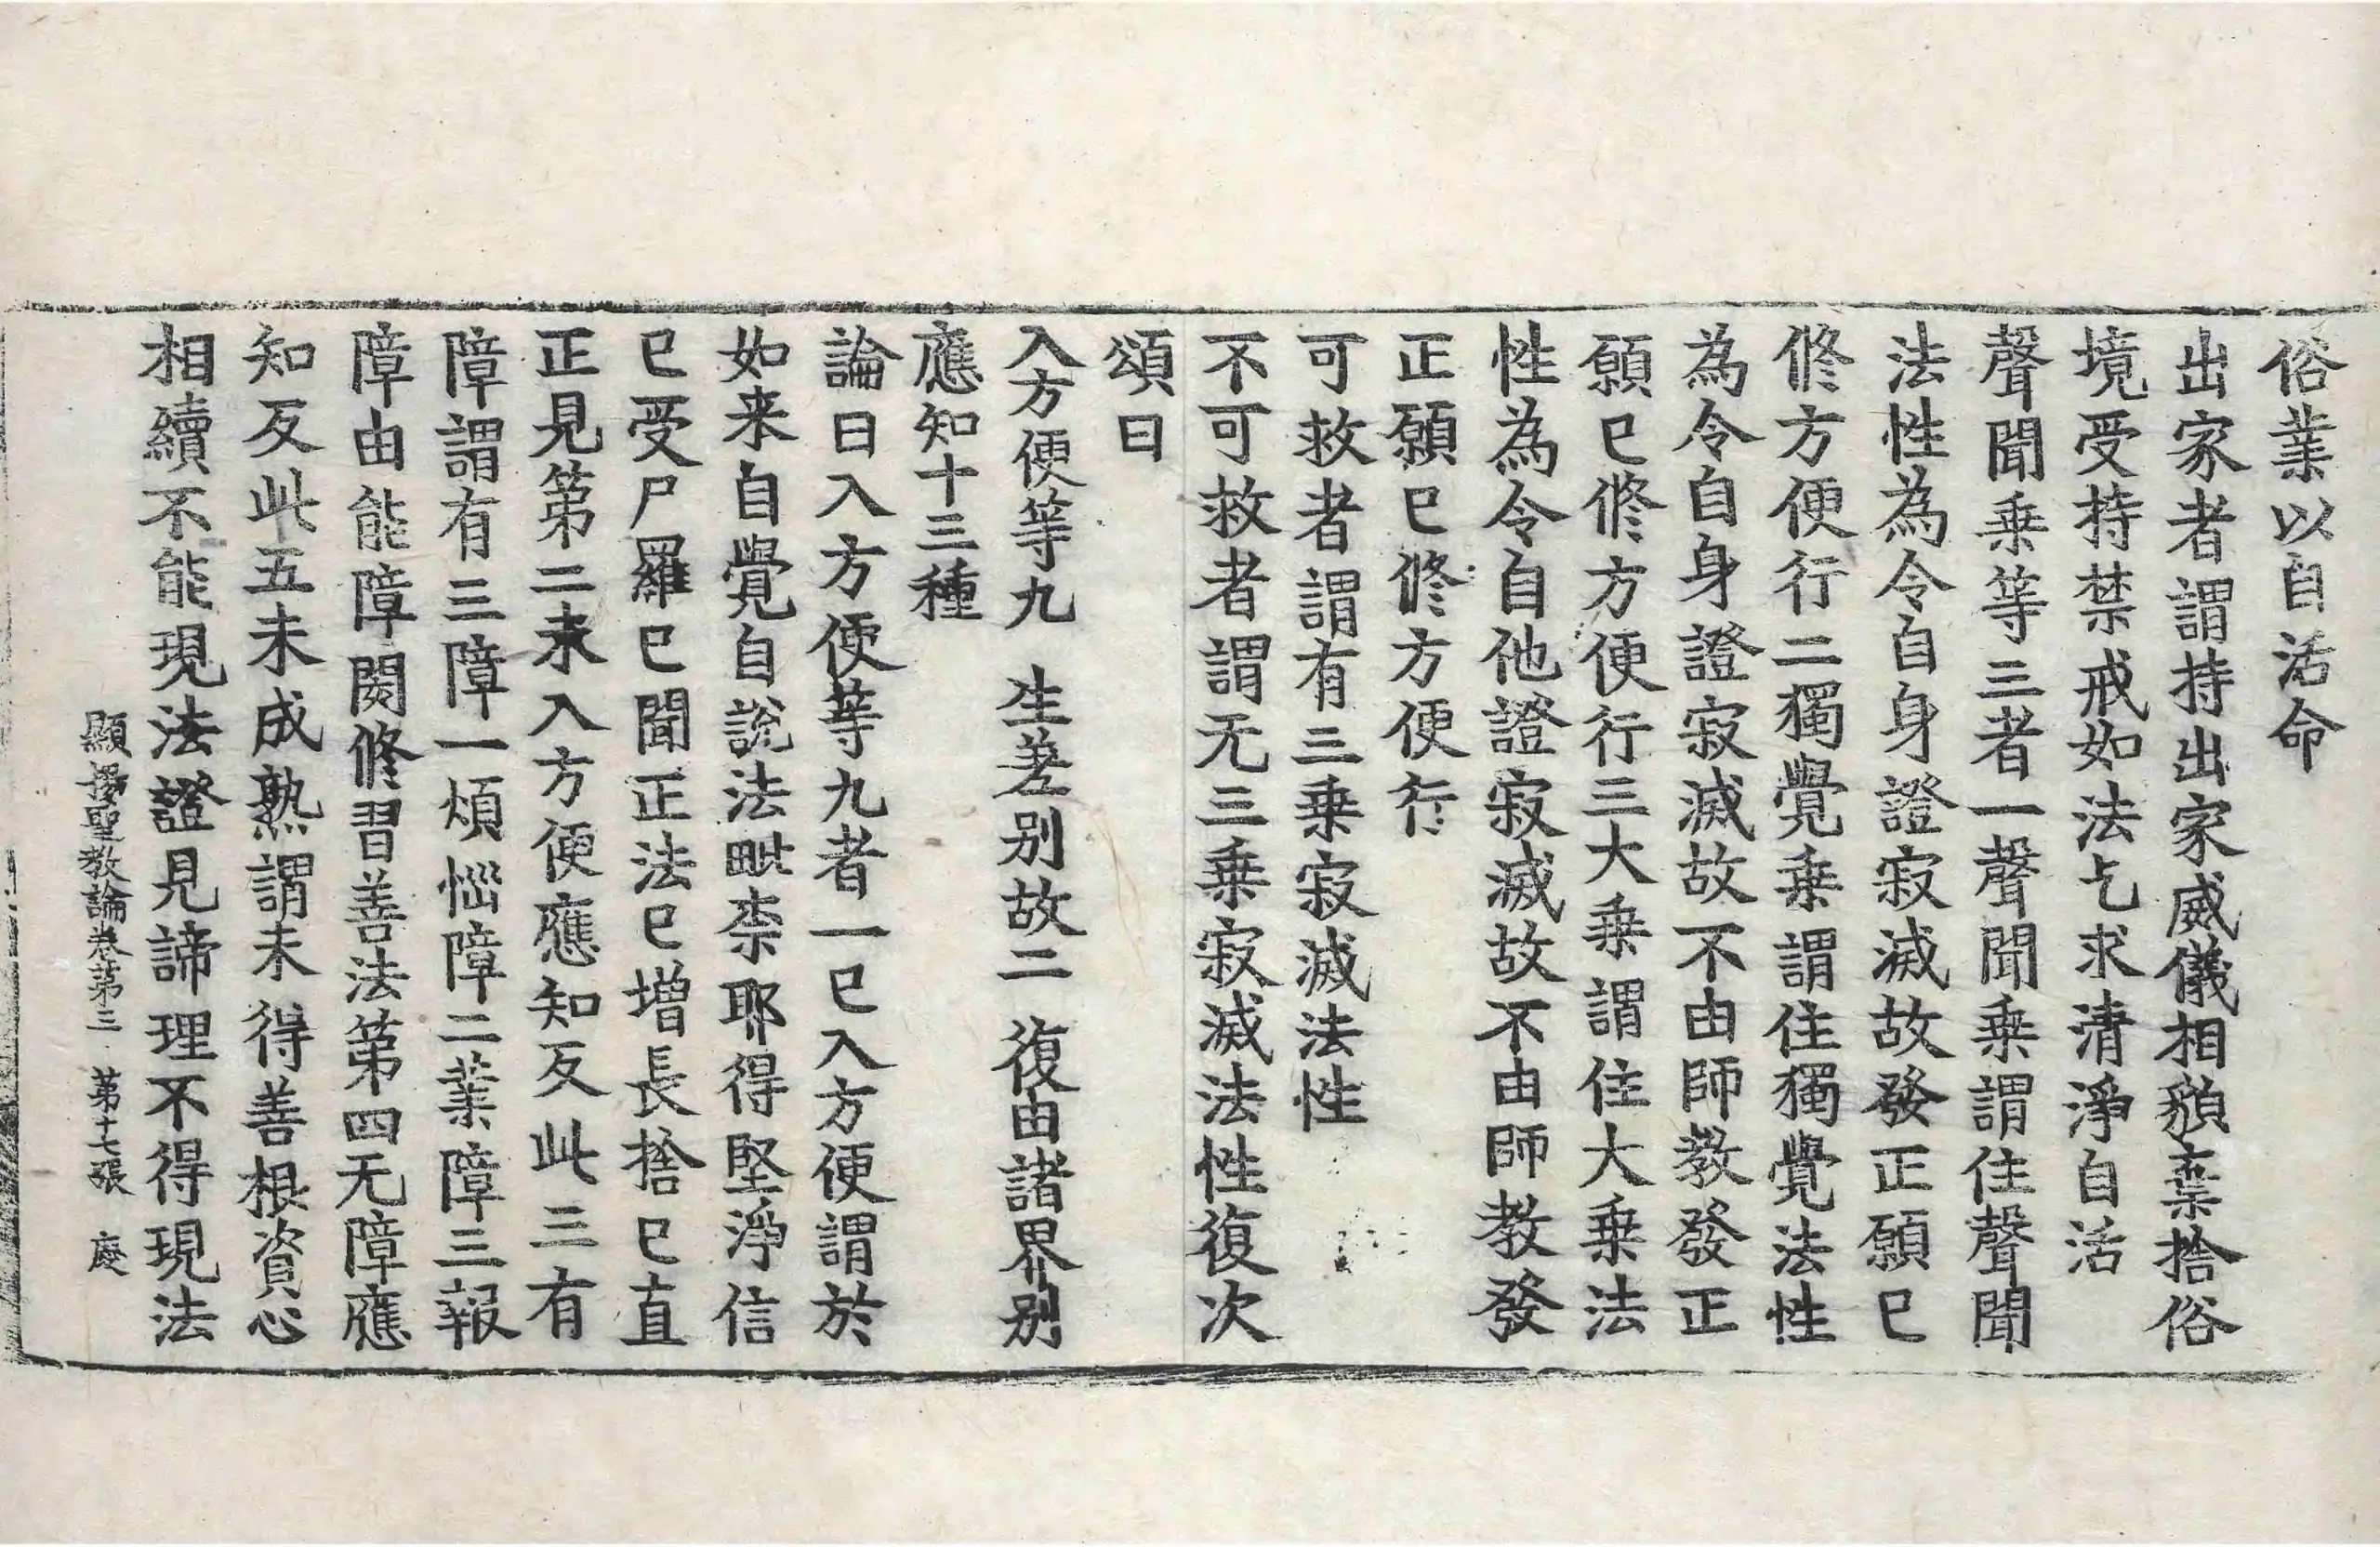 俗業以自活命
出家者謂持出家威儀相㒵棄捨俗
境受持禁戒如法乞求清淨自活
聲聞乗等三者一聲聞乗謂住聲聞
法性為令自身證寂滅故發正願已
修方便行二獨覺乗謂住獨覺法性
為令自身證寂滅故不由師教發正
願已修方便行三大乗謂住大乗法
性為令自他證寂滅故不由師教發
正願已修方便行
可救者謂有三乗寂滅法性
不可救者謂无三乗寂滅法性復次
頌曰
入方便等九　生差別故二　復由諸界別
應知十三種
論曰入方便等九者一已入方便謂於
如来自覺自說法毗柰耶得堅淨信
已受尸羅已聞正法已增長捨已直
正見第二未入方便應知反此三有
障謂有三障一煩惱障二業障三報
障由能障閡修習善法第四无障應
知反此五未成熟謂未得善根資心
相續不能現法證見諦理不得現法
顯揚聖教論卷第三　第十七張　慶